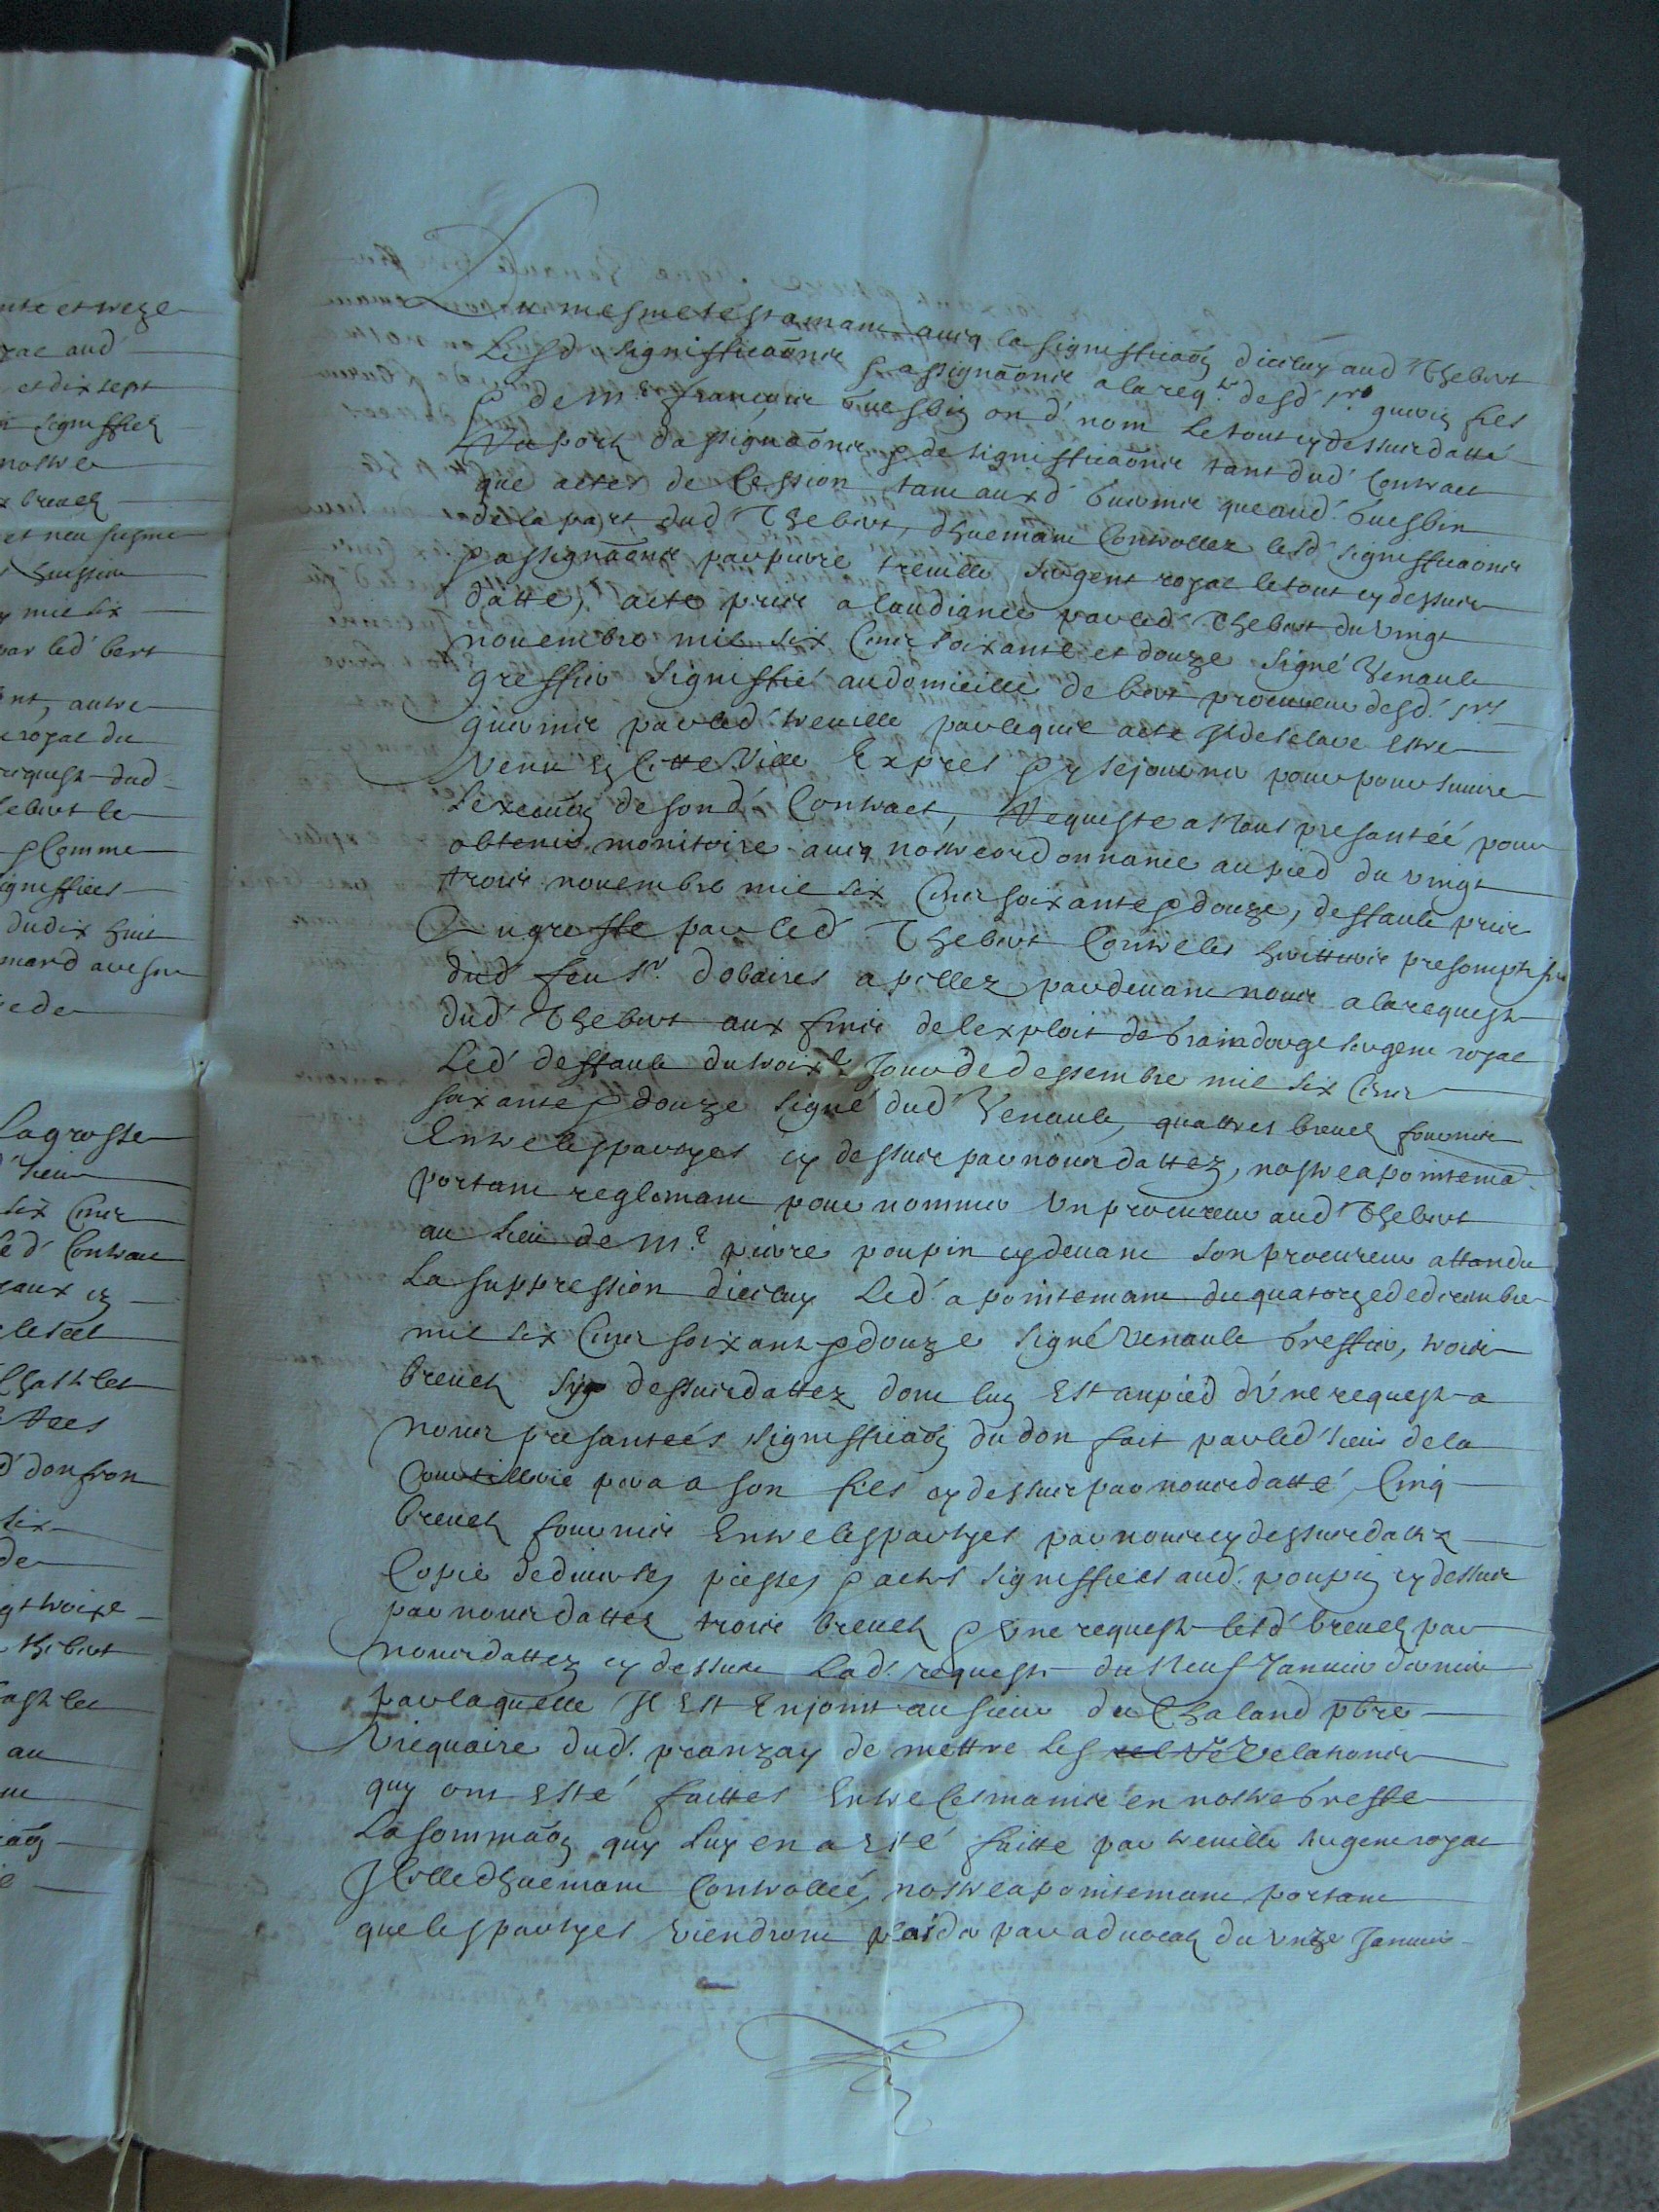 nte et treze
zal aud
et dix sept
signiffiez
nostre
breuetz
et neu susme
huissier
mil six
par led' bert
ant, autre
royal du
request dud
Thebert le
& Comme
signiffiees
du dix huit
mard avesne
ede
La grosse
d' sieur
six Cens
led' Contract
le seel
Chastelet
d' donfron
six
de
gt troize
thibert
Chastelet
au
Du mesme testamant aueq la signifficaõn diceluy aud Thebert
Lesd' signifficaõns & assignaõns a la reqte desd' srs guerin fils
& de Me françois Guesbin ond' nom le tout cy dessus datté
Raport dassignaõns & de signifficaõns tant dud' Contract
que actes de Cession tant auxd' Guerins que aud' Guesbin
de la part dud' Thebert, dhuemant Controllez lesd' signifficaõns
& assignaõns par pierre treuille sergent royal le tout cy dessus
datté, acte pris a laudiance par led' Thebert du vingt
nouembre mil six Cens soixante et douze signé Venault
greffier signiffié au domicille de bert procureur desd' srs
guerins par led' treuille par lequel acte Il desclare estre
Venu En Cette Ville Exprès & y sejourner pour poursuiure
Lexecuõn de sond' Contract, Requeste a Nous presantéé pour
obtenir monitoire aueq nostre ordonnance au pied du vingt
trois nouembre mil six Cens soixante & douze, deffault pris
Au greffe par led' Thebert Contre les heritiers presomptifs
dud' feu sr. dobaires apellez par deuant nous a la requeste
dud' Thebert aux fins de lexploit de sergent royal
Led' deffault du troixe Jour de dessembre mil six Cens
soixante & douze signé dud' Venault, quattres breuetz fournis
Entre les partyes cy dessus par nous dattez, nostre apointemã
portant reglemant pour nommer Un procureur aud' Thebert
au lieu de Me pierre poupin cy deuant son procureur attandu
La suppression diceluy Led' apointemant du quatorze de decembre
mil six Cens soixante & douze signé Venault Greffier, trois
breuetz sy dessus dattez dont luy Est au pied d'Vne requeste a
nous presantéés, signifficaõn du don fait par led' sieur de la
Courtillerie pera a son fils cy dessus par nous datté, Cinq
breuetz fournis Entre les partyes par nous cy dessus dattez
Copie de diuerses piesses & actes signiffiéés aud' poupin cy dessus
par nous dattez trois breuetz & Vne requeste lesd' breuetz par
nous dattez cy dessus Lad' requeste du Neuf Janvier dernier
par laquelle Il Est Enjoint au sieur du Chaland pbre
Vicquaire dud' pranzay de mettre les Relations
quy ont Esté faittes Entre Ces mains en nostre Greffe
La sommaõn quy Luy en a Esté faitte par treuille sergent royal
Icelle dhuemant Controlléé, nostre apointemant portant
que les partyes viendront plaider par aduocatz du Vnze Januier